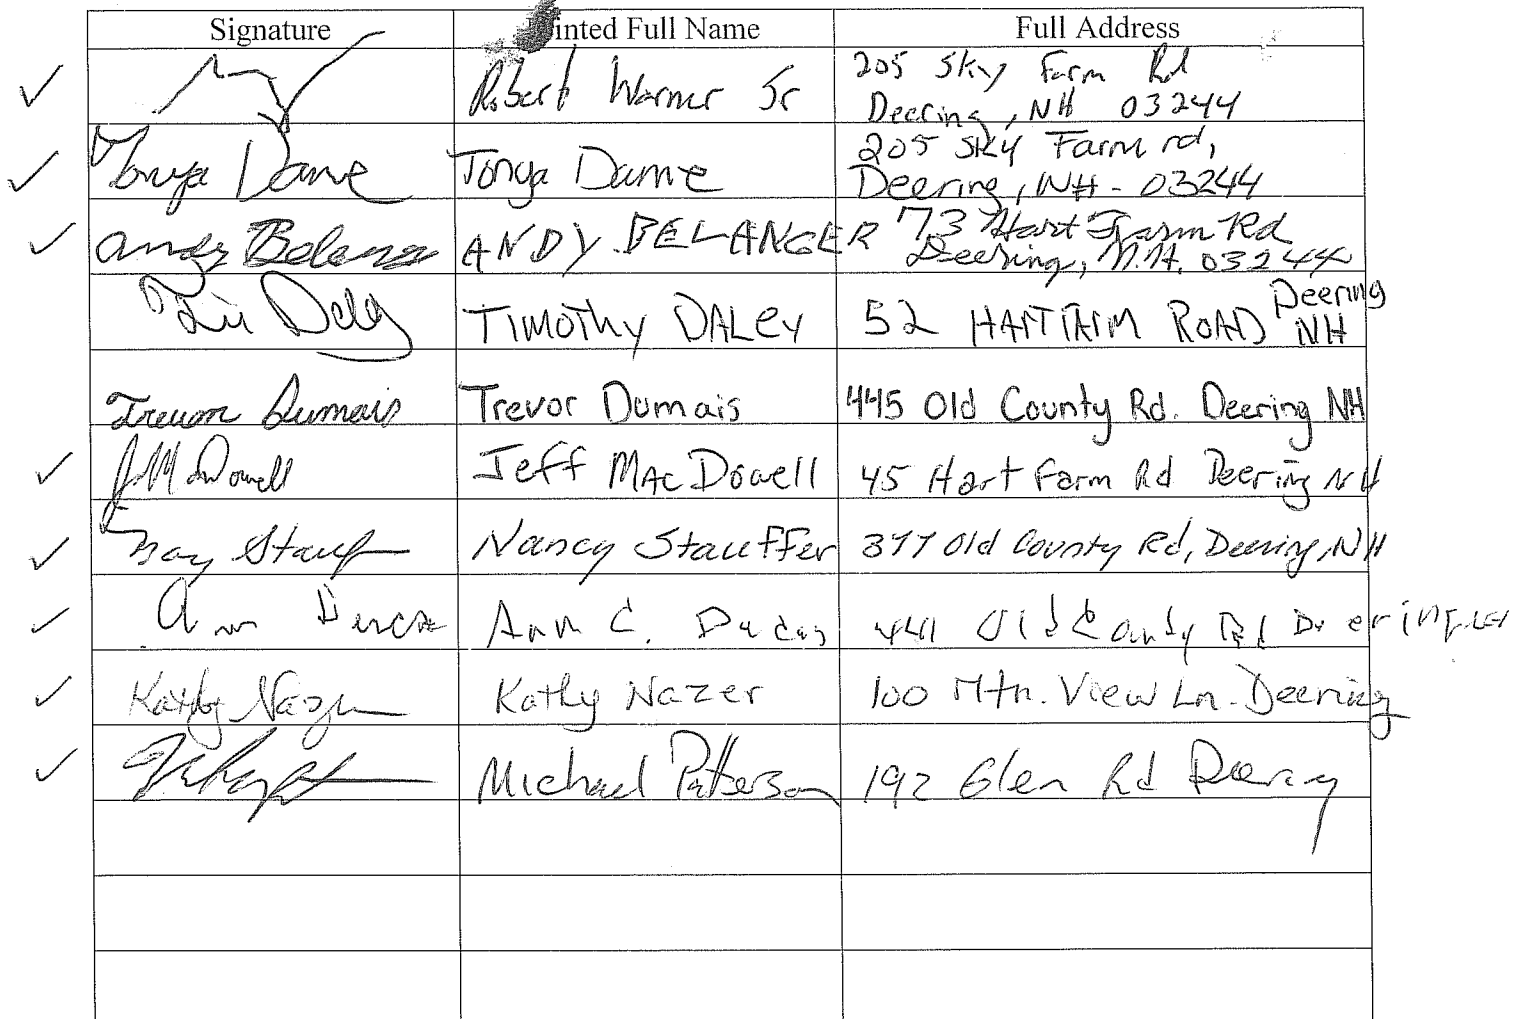 Signature Printed Full Name Full Address
Robert Warner Sr 205 Sky Farm Rd
Deering, NH 03244
Tonya Dame Tonya Dame 205 Sky Farm rd,
Deering, NH - 03244
Andy Belanger ANDY BELANGER 73 Hart Farm Rd
Deering, N.H. 03244
Tim Daley TIMOTHY DALEY 52 HART FARM ROAD Deering
NH
Trevor Dumais Trevor Dumais 445 Old County Rd. Deering NH
J MacDowell Jeff MacDowell 45 Hart Farm Rd Deering NH
Nancy Stauffer 377 Old County Rd, Deering, NH
Ann Ann C. Old County Rd Deering
Kathy Nazer Kathy Nazer 100 Mtn. View Ln. Deering
Michael Patterson 192 Glen Rd Deering